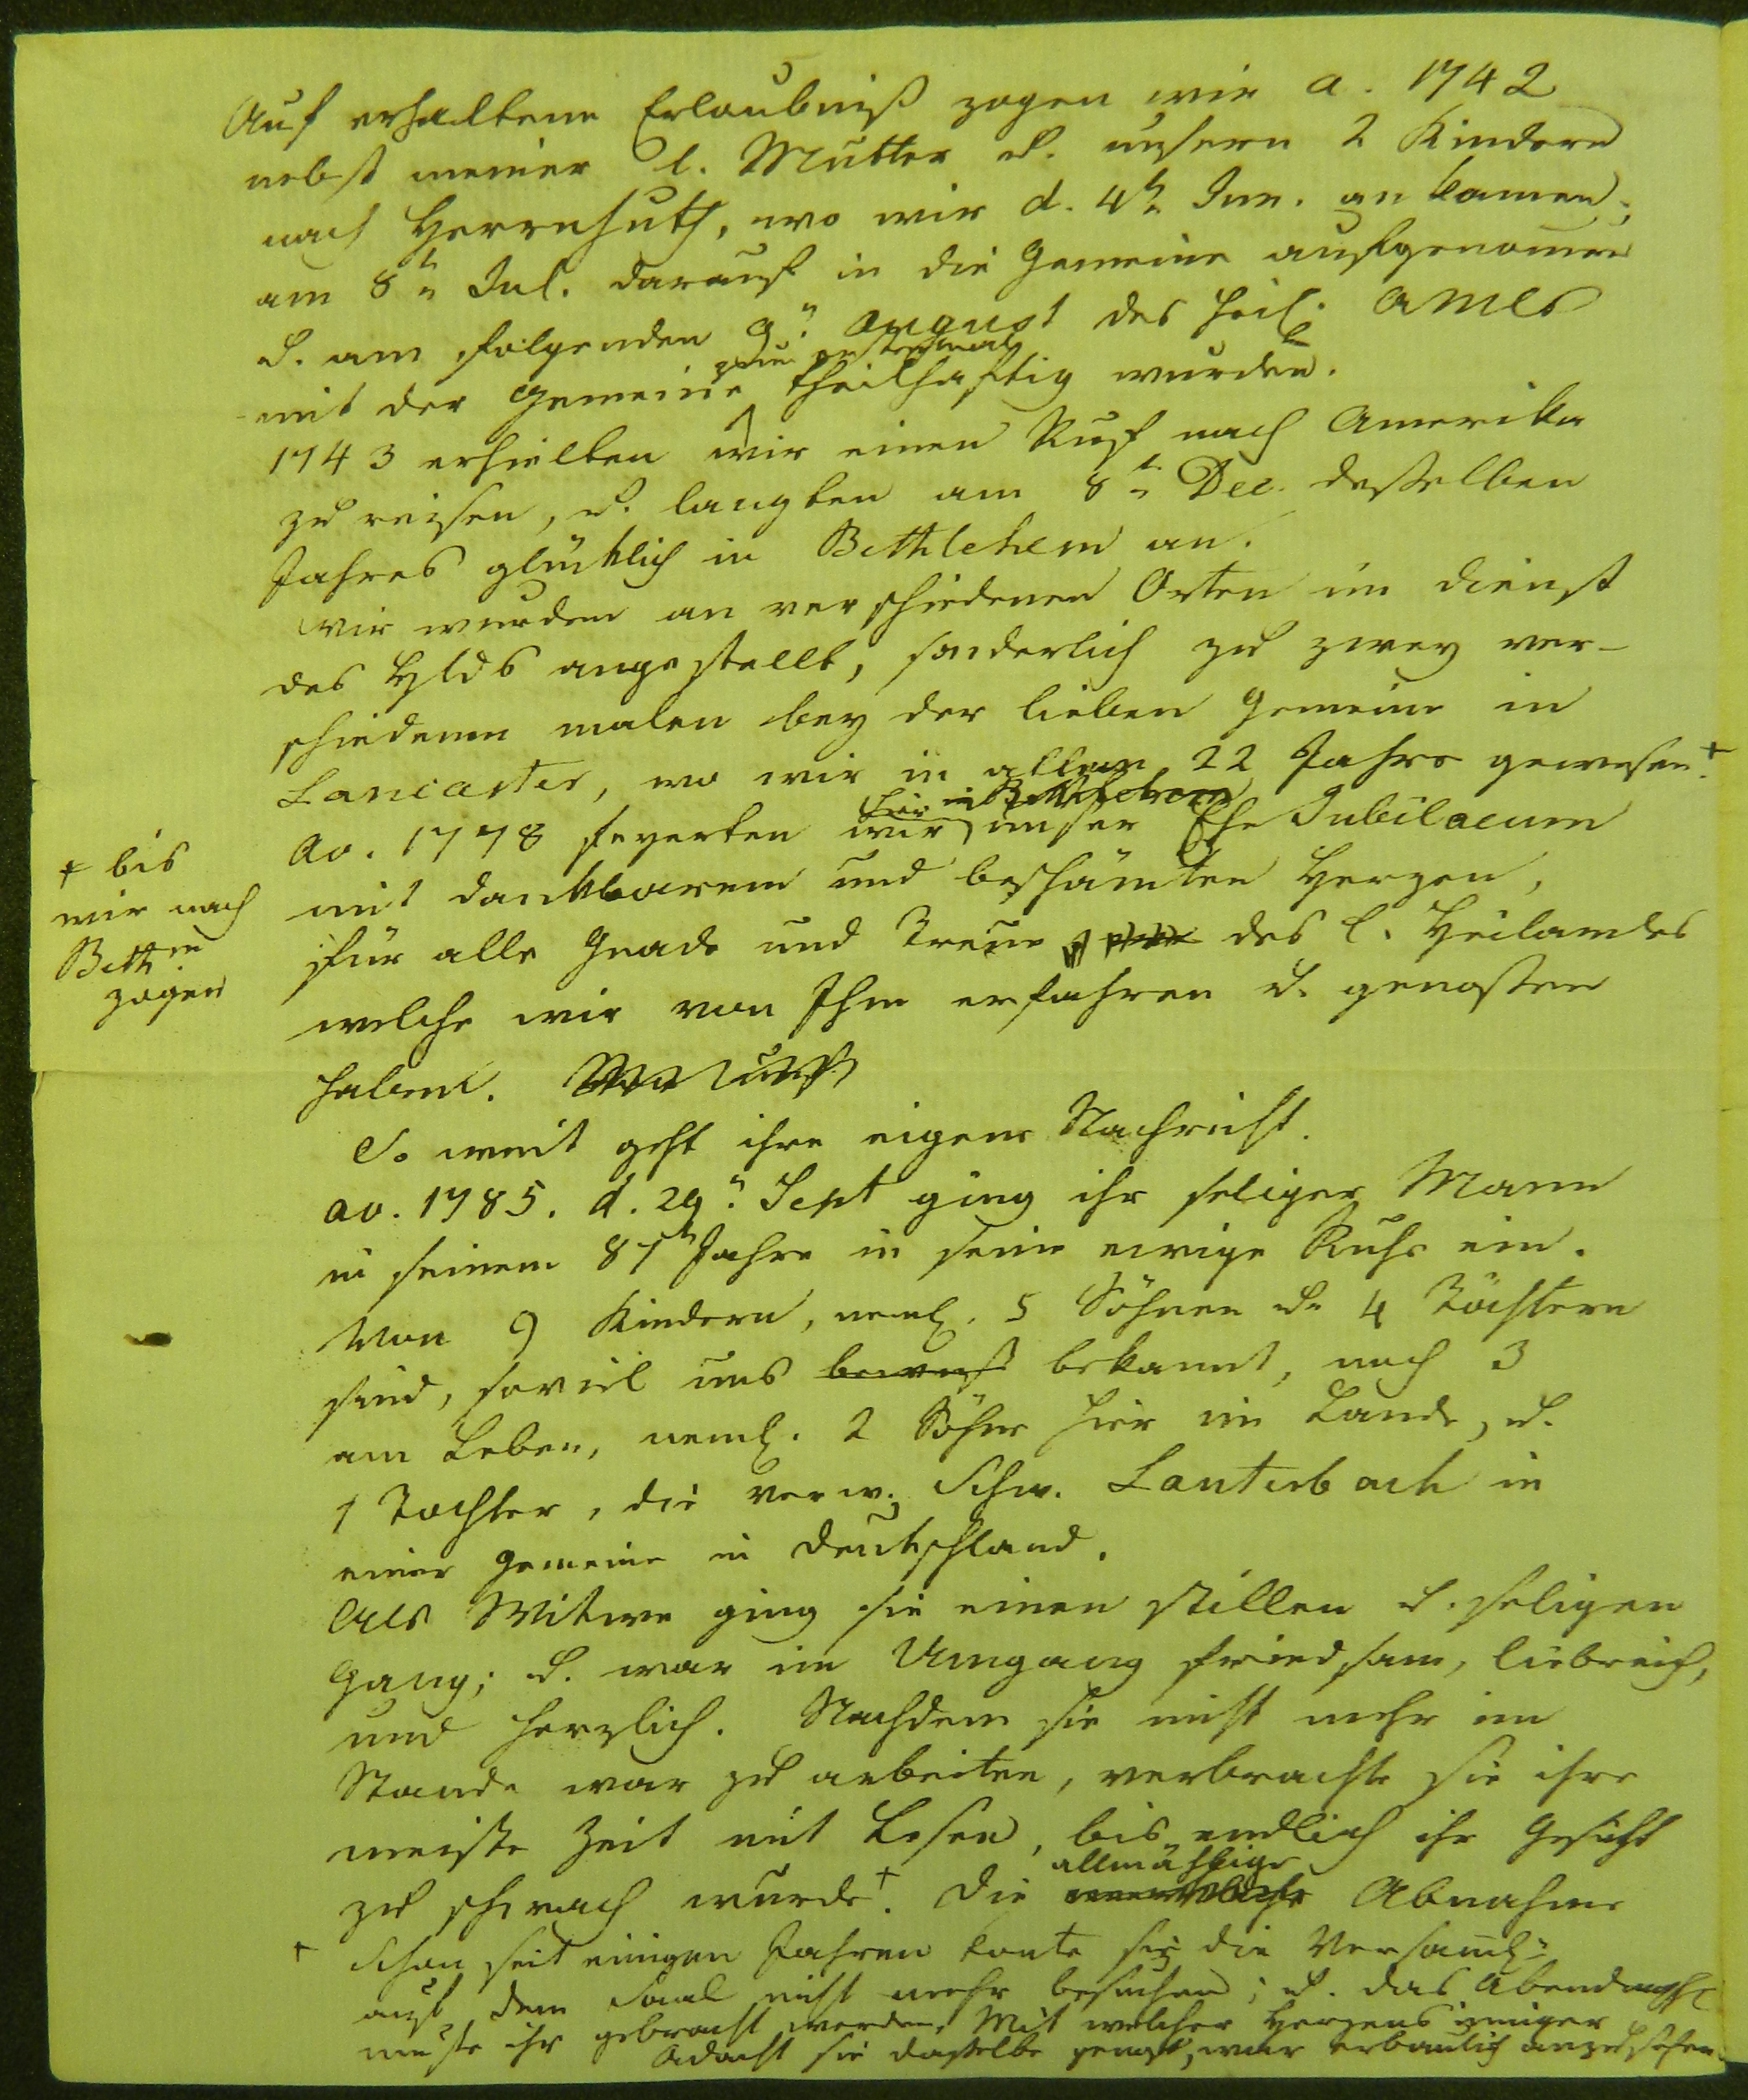 Auf erhaltene Erlaubniß zogen wir a. 1742
nebst meiner l. Mutter u. unsern 2 Kindern
nach Herrnhuth, wo wir d. 4tn Jun. ankamen,
am 8tn Jul. darauf in die Gemeine aufgenomen
u. am folgenden 9n August des heil. AMls
zum erstenmal
mit der Gemeine theilhaftig wurden.
1743 erhielten wir einen Ruf nach Amerika
zu reisen, u. langten am 8tn Dec. desselben
Jahres glücklich in Bethlehem an.
Wir wurden an verschiedenen Orten im Dienst
des Hlds angestellt, sonderlich zu zwey ver-
schiedenen malen bey der lieben Gemeine in
Lancaster, wo wir in allem 22 Jahre gewesen +.
hier in Bethlehem
Ao. 1778 feyerten wir unser Ehe Jubilaeum
+ bis
wir nach
Bethm
zogen
mit dankbarem und beschämten Herzen,
für alle Gnade und Treue des l. Heilandes
welche wir von Ihm erfahren u. genossen
haben.
So weit geht ihre eigene Nachricht.
ao. 1785. d. 29n Sept ging ihr seliger Mann
in seinem 81n Jahre in seine ewige Ruhe ein.
Von 9 Kindern, neml. 5 Söhnen u. 4 Töchtern
sind, soviel uns bewust bekannt, noch 3
am Leben, neml. 2 Söhne hier im Lande, u.
1 Tochter, die verw. Schw. Lauterbach in
einer Gemeine in Deutschland.
Als Witwe ging sie einen stillen u. seligen
Gang; u. war im Umgang friedsam, liebreich,
und herzlich. Nachdem sie nicht mehr im
Stande war zu arbeiten, verbrachte sie ihre
meiste Zeit mit Lesen, bis endlich ihr Gesicht
allmählige
zu schwach wurde +. Die Abnahme
+ Schon seit einigen Jahren konte sie die Versaml.
auf dem Saal nicht mehr besuchen; u. das Abendmahl
muste ihr gebracht werden. Mit welcher Herzens inniger
Adacht sie dasselbe genoß, war erbaulich anzusehen.